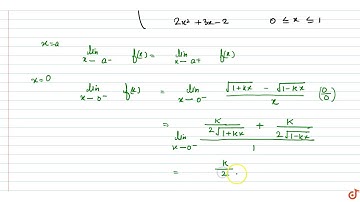 2x² + 3x - 2    0 ≤ x ≤ 1
x = a    lim x→a⁻ f(x) = lim x→a⁺ f(x)
x = 0    lim x→0⁻ f(x) = lim x→0⁻ (√(1+kx) - √(1-kx)) / x (0/0)
= lim x→0⁻ (k/(2√(1+kx)) + k/(2√(1-kx))) / 1
= k/2